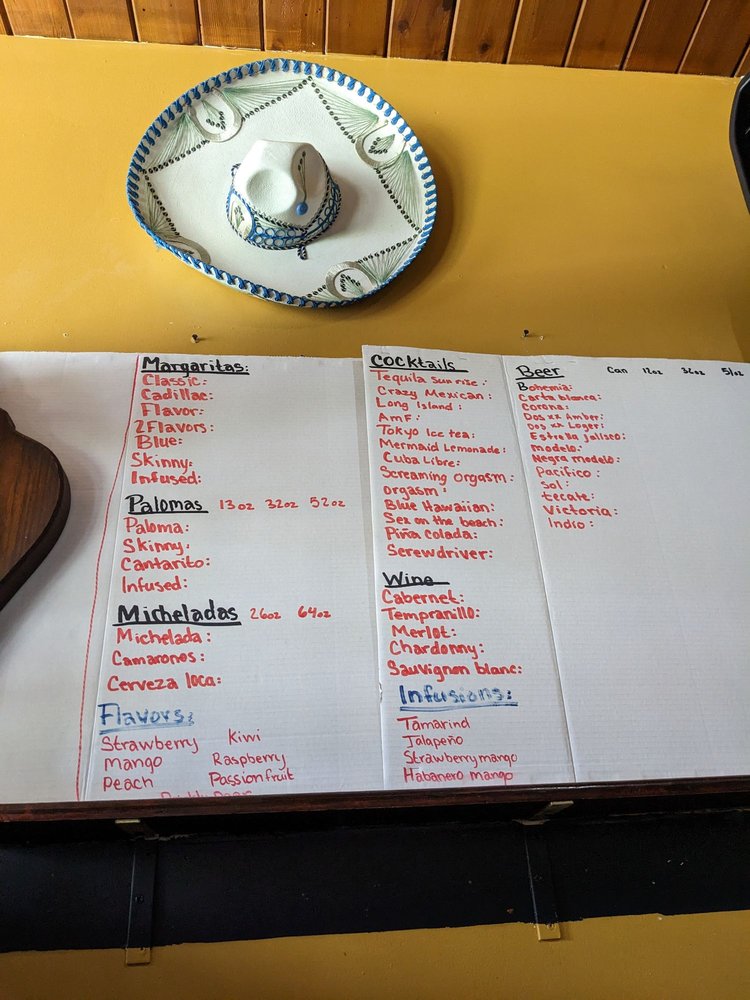 Margaritas:
Classic:
Cadillac:
Flavor:
2Flavors:
Blue:
Skinny:
Infused:
Palomas 13oz 32oz 52oz
Paloma:
Skinny:
Cantarito:
Infused:
Micheladas 26oz 64oz
Michelada:
Camarones:
Cerveza loca:
Flavors:
Strawberry Kiwi
Mango Raspberry
Peach Passionfruit
Cocktails
Tequila sunrise:
Crazy Mexican:
Long Island:
AMF:
Tokyo Ice tea:
Mermaid Lemonade:
Cuba Libre:
Screaming Orgasm:
Orgasm:
Blue Hawaiian:
Sex on the beach:
Piña colada:
Screwdriver:
Wine
Cabernet:
Tempranillo:
Merlot:
Chardonny:
Sauvignon blanc:
Infusions:
Tamarind
Jalapeño
Strawberry mango
Habanero mango
Beer Can 12oz 32oz 51oz
Bohemia:
Carta blanca:
Corona:
Dos xx Amber:
Dos xx Lager:
Estrella jalisco:
modelo:
Negra modelo:
Pacifico:
Sol:
tecate:
Victoria:
Indio: